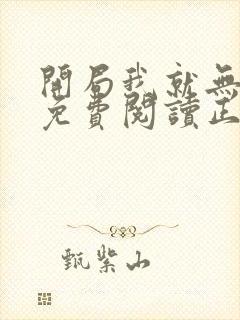 開局我就無
免費閱讀正
甄紫山